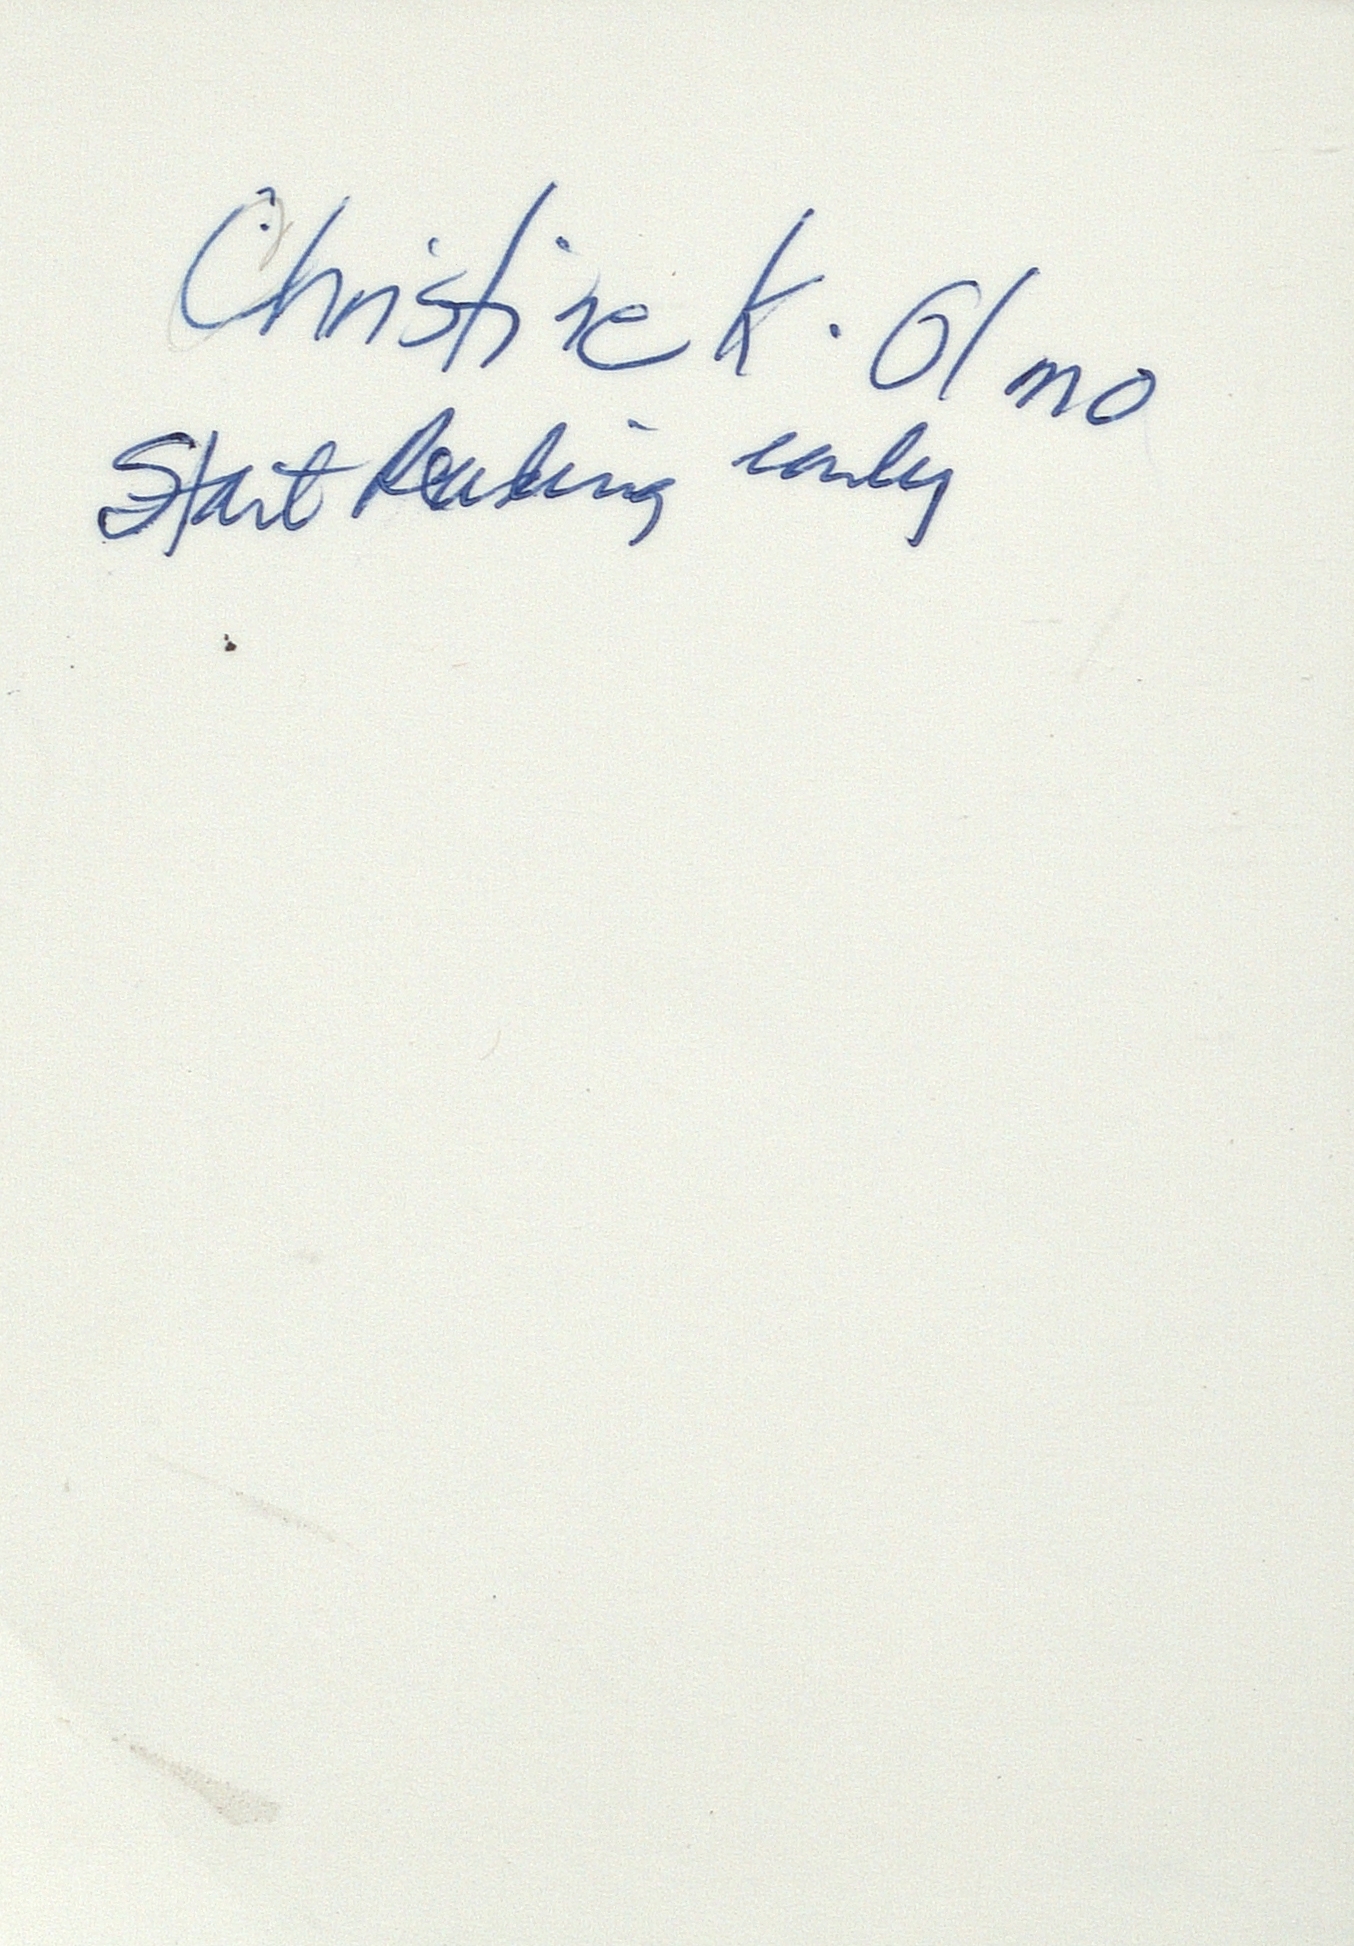 Christine K. Olmo
Start Reading early